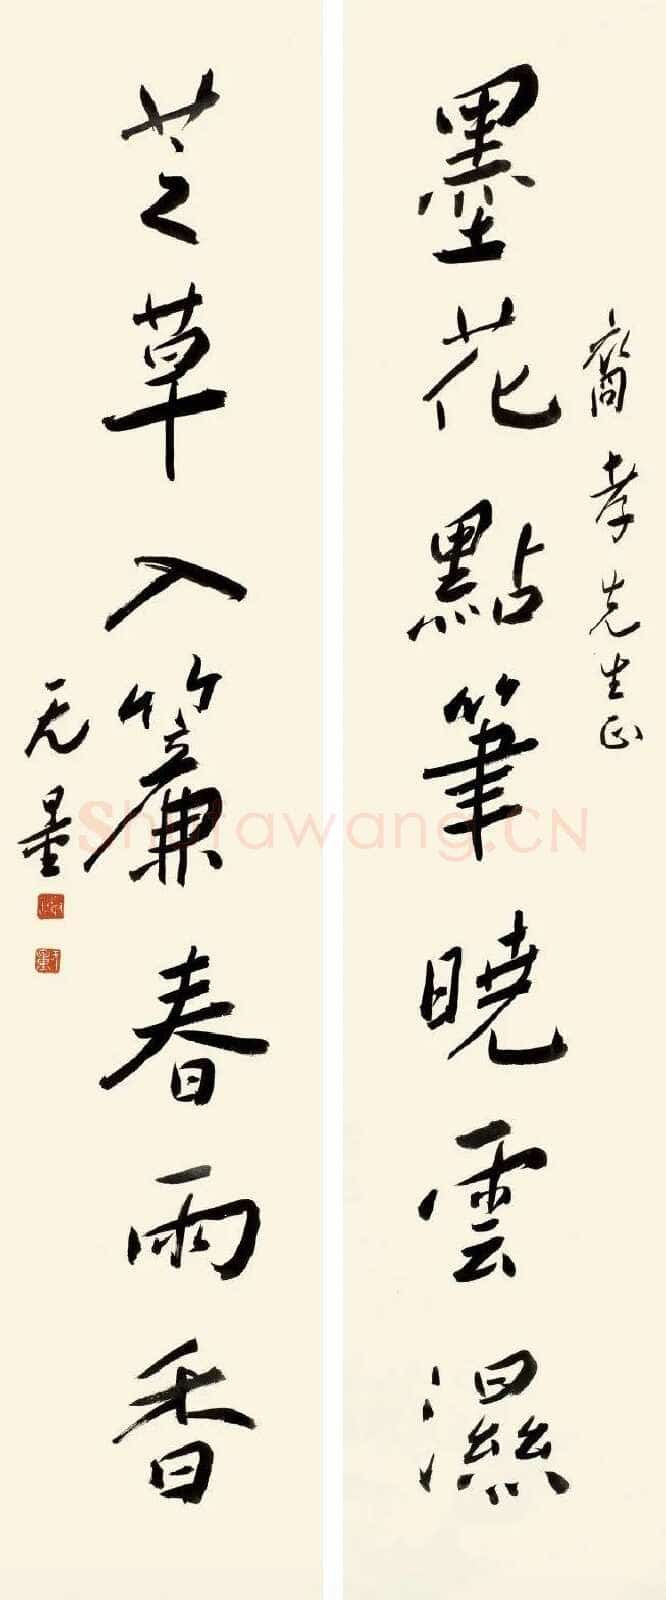 裔孝先生正
墨花點筆曉雲濕
芝草入簾春雨香
无量
Shufawang.CN